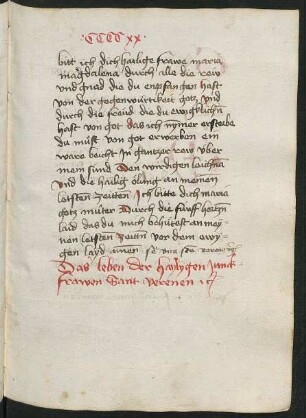 ·CCCC xx·
bitt ich dich hailige frawe maria
magdalena durch alle die rew
und gnad die du enpfangen hast
von der gegenwürtikeit gotz und
durch die freud die du ewigklichen
hast von got das ich nymer ersterbe
du must von got erwerben ein
ware beicht in gantzer rew über
mein sund Den wirdigen leichnam
und die hailig ölung an meinen
letsten zeitten Ich bitte dich maria
gotz muter Durch die fünff hertzen
laid das du mich behütest an mey
nen letsten zeitten vor dem ewy
gen layd amen
Das leben der hayligen junck
frawen Sant verenen